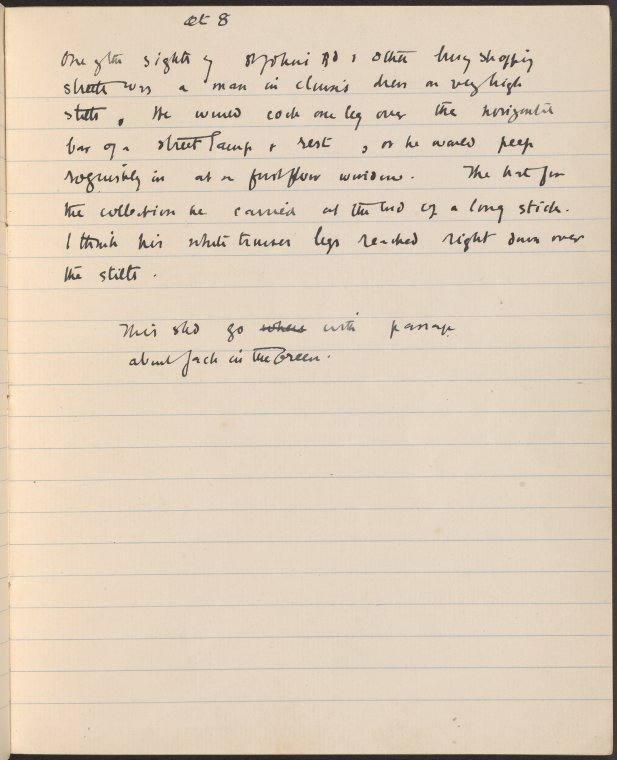 at 8
One of the sights of St Johns Rd & other busy shopping
streets was a man in clown's dress on very high
stilts. He would cock one leg over the horizontal
bar of a street lamp & rest, or he would peep
roguishly in at a first floor window. The hat for
the collection he carried at the end of a long stick.
I think his white trouser legs reached right down over
the stilts.
This shd go where with passage
about Jack in the Green.